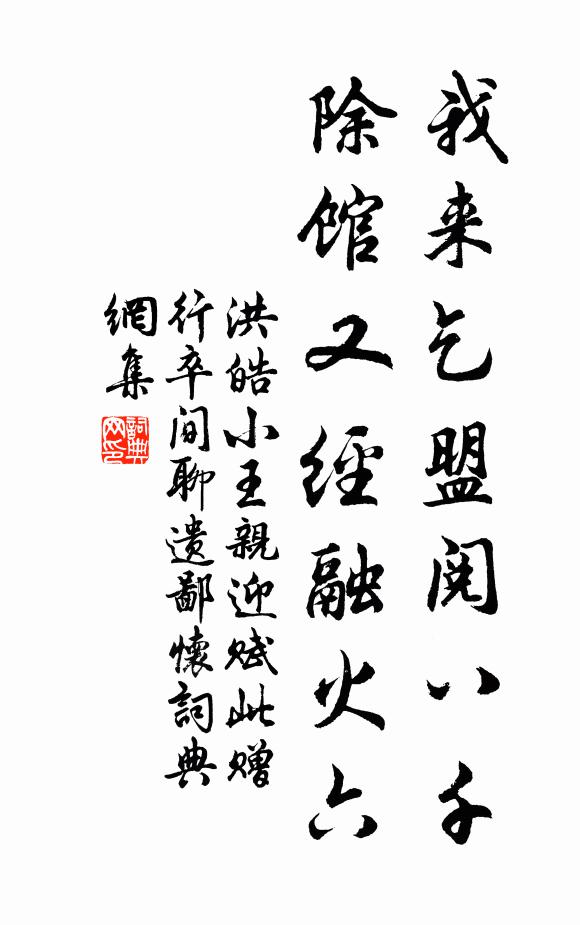 我来乞盟閱八千
除館又經融火六
洪皓小王親迎赋此贈
行卒间聊遗鄙懷詞典
網集
詞典
网印